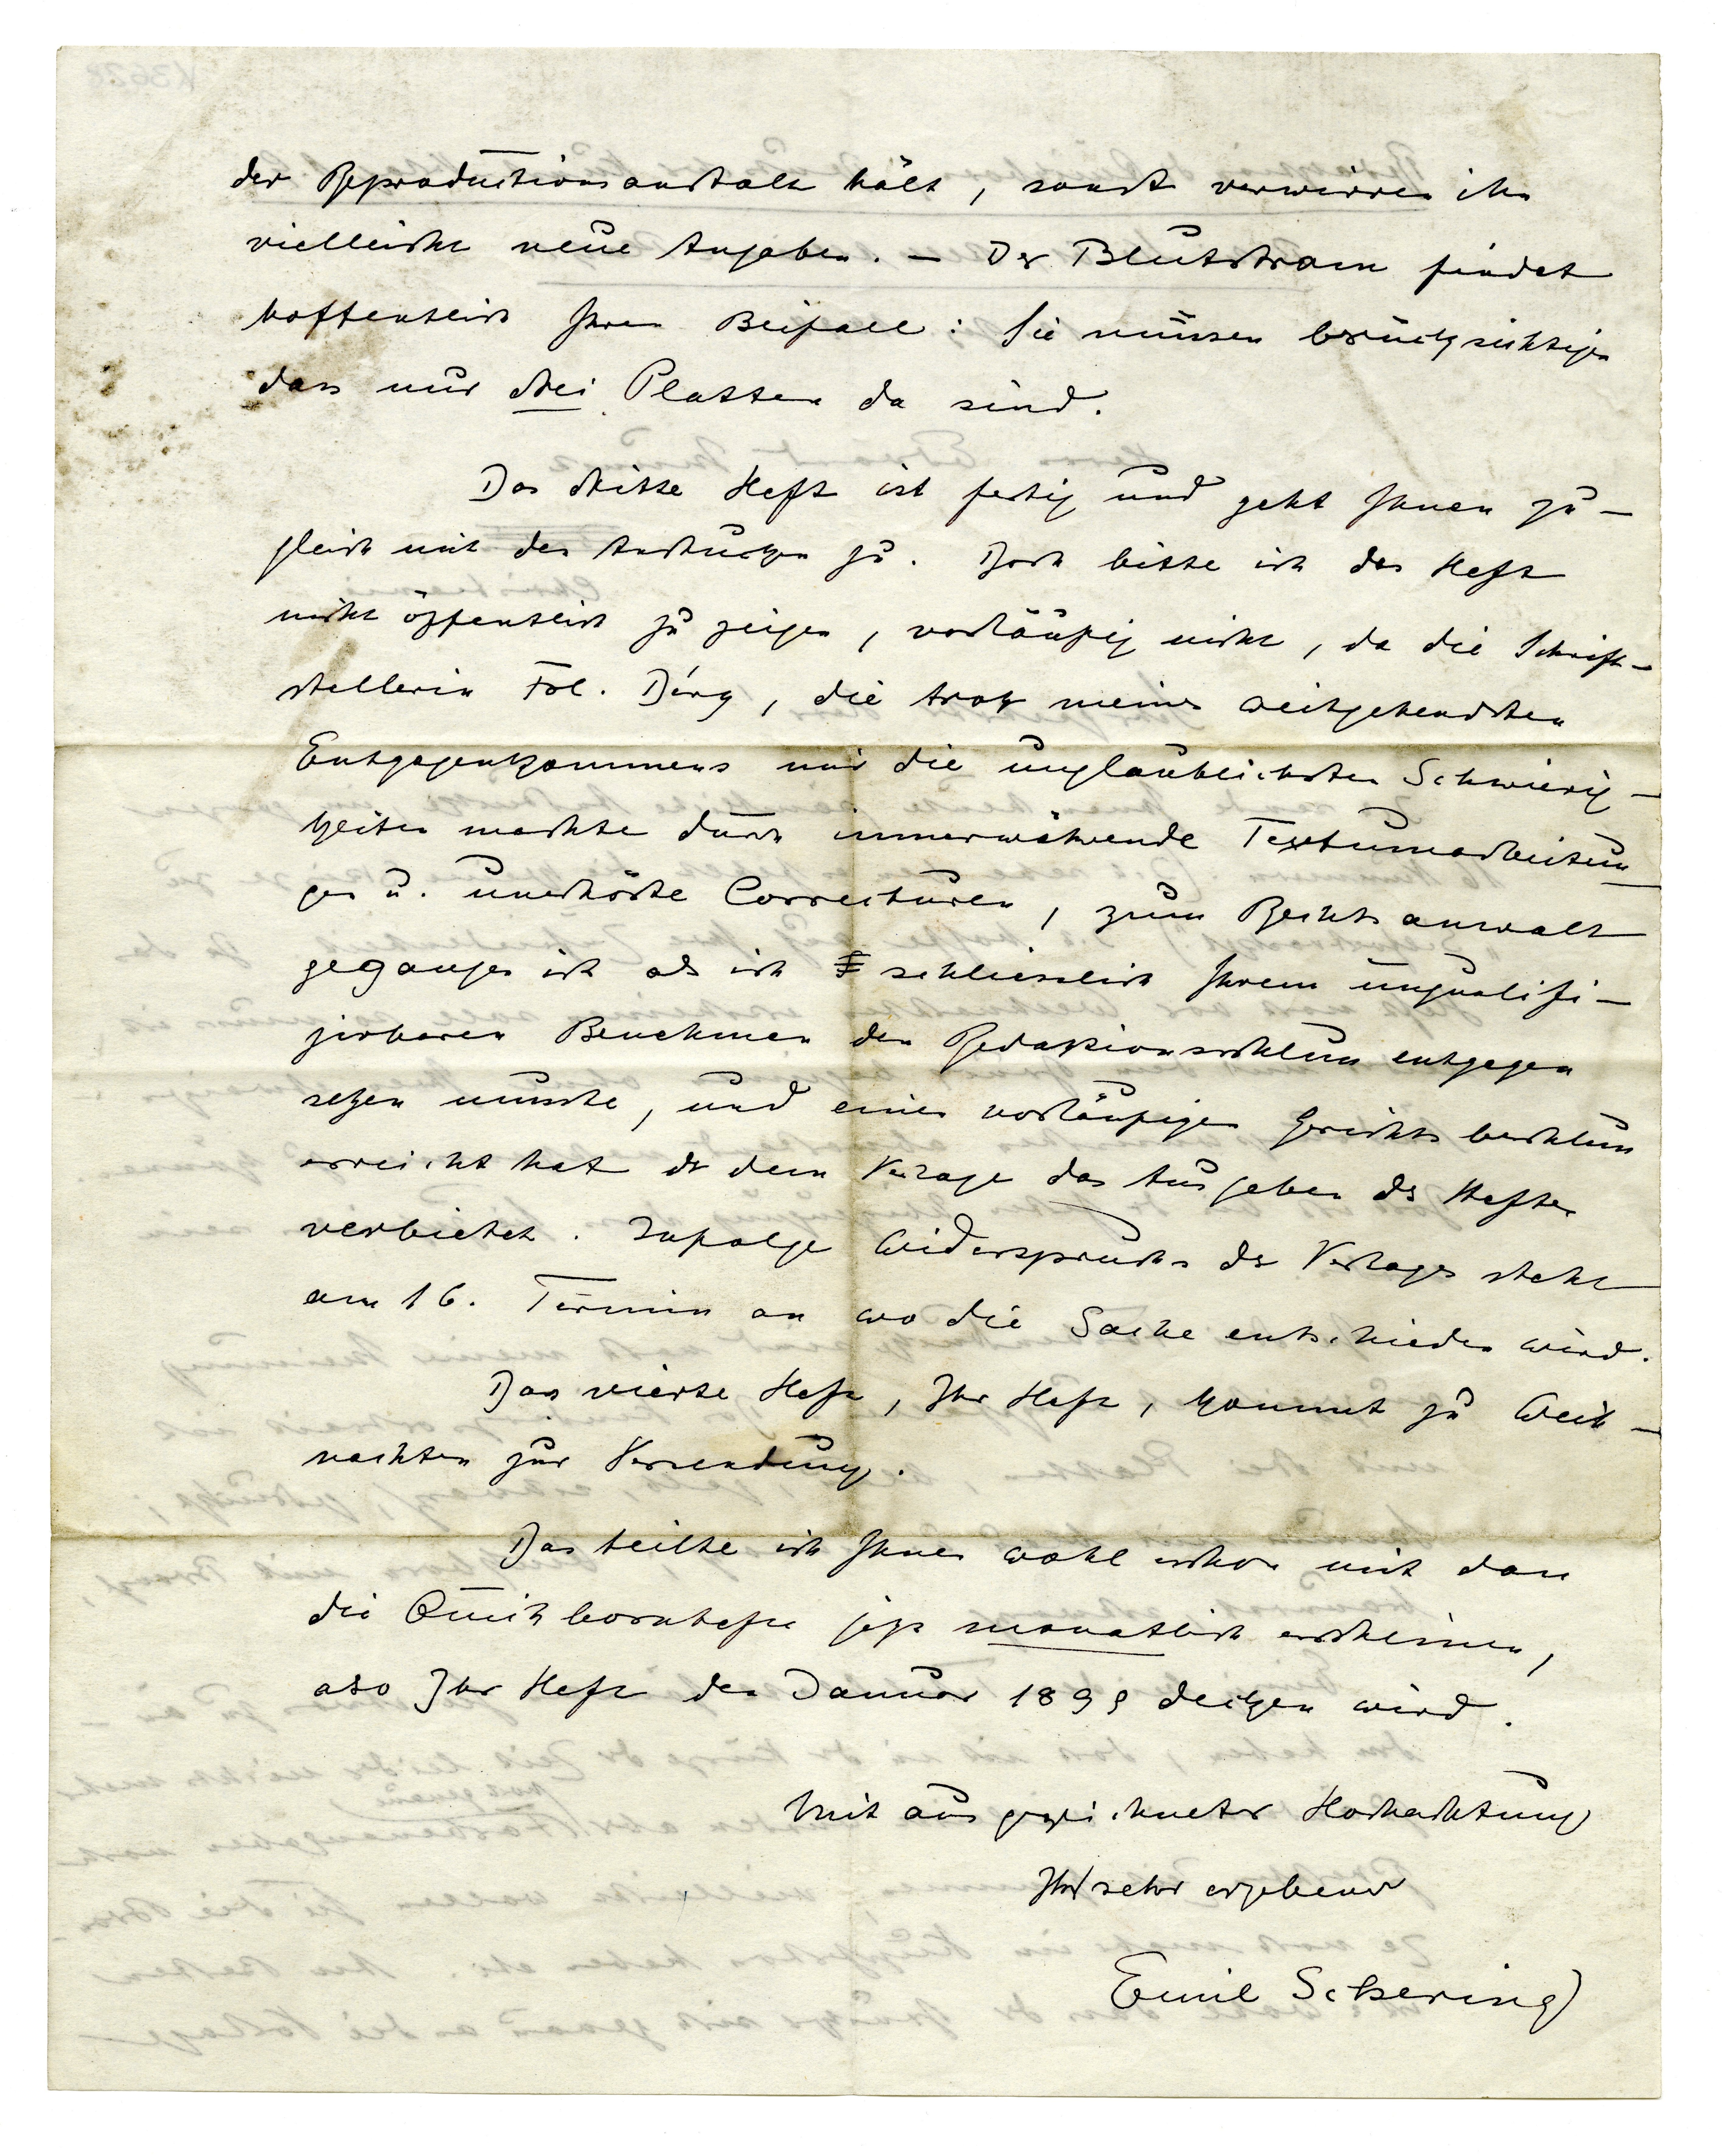 der Reproductionsanstalt hält, sonst verwirren ihn
vielleicht neue Angaben. – Der Blutstrom findet
hoffentlich Ihren Beifall: Sie müssen berücksichtigen
dass nur drei Platten da sind.
Das dritte Heft ist fertig und geht Ihnen zu-
gleich mit den Andrucken zu. Doch bitte ich das Heft
nicht öffentlich zu zeigen, vorläufig nicht, da die Schrift-
stellerin Frl. , die trotz meines weitgehendsten
Entgegenkommens mir die unglaublichsten Schwierig-
keiten machte durch immerwährende Textumarbeitun-
gen u. unerhörte Correcturen, zum Rechtsanwalt
gegangen ist als ich schliesslich Ihrem unqualifi-
zirbaren Benehmen den Redaktionsschluss entgegen
setzen musste, und einen vorläufigen Gerichtsbeschluss
erreicht hat der dem Verlage das Ausgeben des Heftes
verbietet. Infolge Widerspruchs des Verlages steht
am 16. Termin an wo die Sache entschieden wird.
Das vierte Heft, Ihr Heft, kommt zu Weih-
nachten zur Versendung.
Das teilte ich Ihnen wohl schon mit dass
die Quickbornhefte jetzt monatlich erscheinen,
also Ihr Heft den Januar 1899 decken wird.
Mit ausgezeichneter Hochachtung
Ihr sehr ergebener
Emil Schering